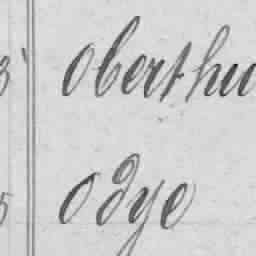 3 Oberthu
5 Odye